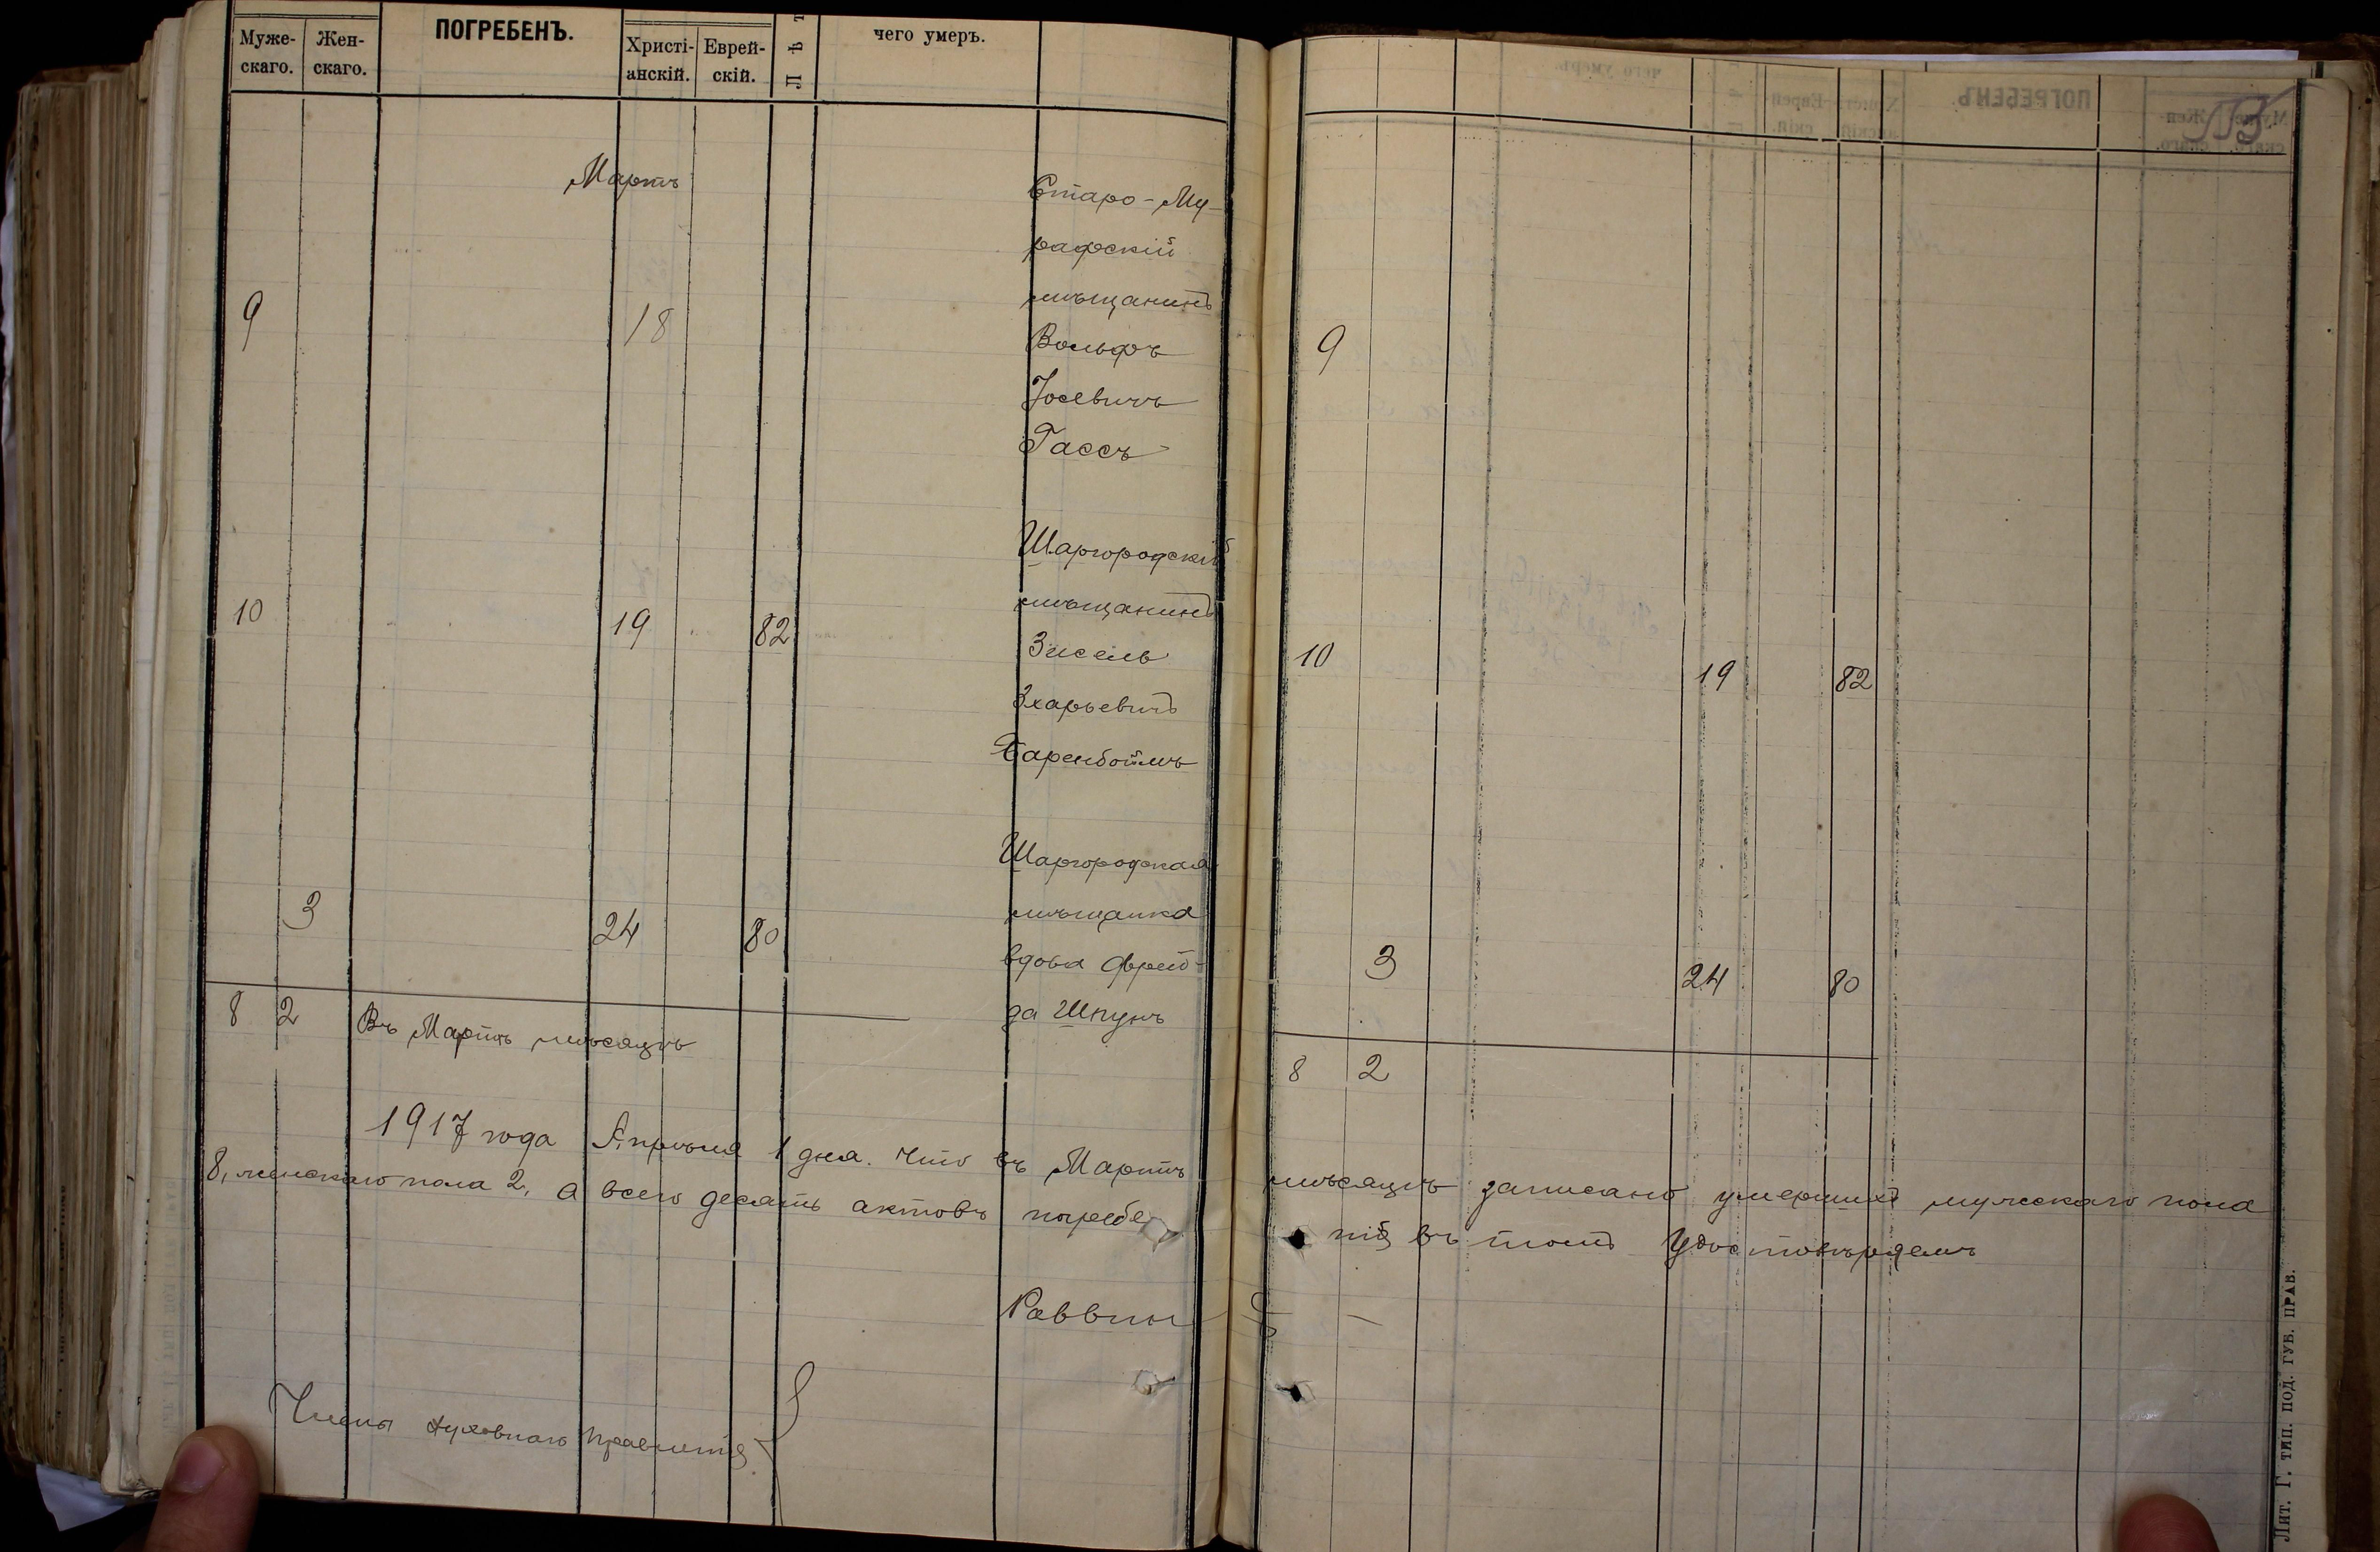 Муже-
скаго.
Жен-
скаго.
ПОГРЕБЕНЪ.
Христі-
анскій.
Еврей-
скій.
Л ѣ т
чего умеръ.
Мартъ
9
18
Старо-Му-
рафскій
мѣщанинъ
Вольфъ
Іосевичъ
Гассъ
10
19
82
Шаргородскій
мѣщанинъ
Зисель
Зхарьевичъ
Баренбоймъ
3
24
80
Шаргородская
мѣщанка
вдова Фрей-
да Шпунъ
8 2 Въ Мартѣ мѣсяцѣ
1917 года Апрѣля 1 дня. Что въ Мартѣ
8, женскаго пола 2, а всего десять актовъ погребе
Раввин
Члены Духовнаго Правленія
9
10
19
82
3
24
80
8 2
мѣсяцѣ записано умершихъ мужскаго пола
нія въ томъ удостовѣряемъ
Лит. Г. ТИП. ПОД. ГУБ. ПРАВ.